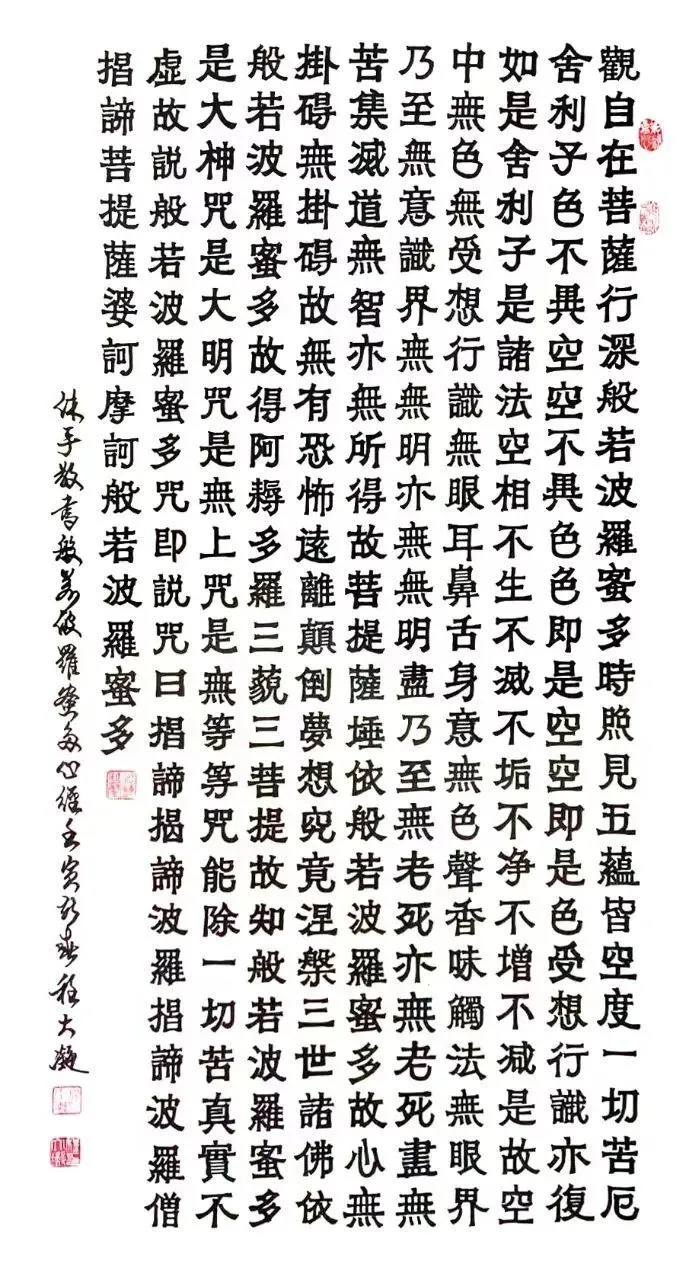 觀自在菩薩行深般若波羅蜜多時照見五蘊皆空度一切苦厄
舍利子色不異空空不異色色即是空空即是色受想行識亦復
如是舍利子是諸法空相不生不滅不垢不净不增不减是故空
中無色無受想行識無眼耳鼻舌身意無色聲香味觸法無眼界
乃至無意識界無無明亦無無明盡乃至無老死亦無老死盡無
苦集滅道無智亦無所得故菩提薩埵依般若波羅蜜多故心無
掛碍無掛碍故無有恐怖遠離顛倒夢想究竟涅槃三世諸佛依
般若波羅蜜多故得阿耨多羅三藐三菩提故知般若波羅蜜多
是大神咒是大明咒是無上咒是無等等咒能除一切苦真實不
虛故説般若波羅蜜多咒即説咒曰揭諦揭諦波羅揭諦波羅僧
揭諦菩提薩婆訶摩訶般若波羅蜜多
沐手敬書般若波羅蜜多心經壬寅新春程大